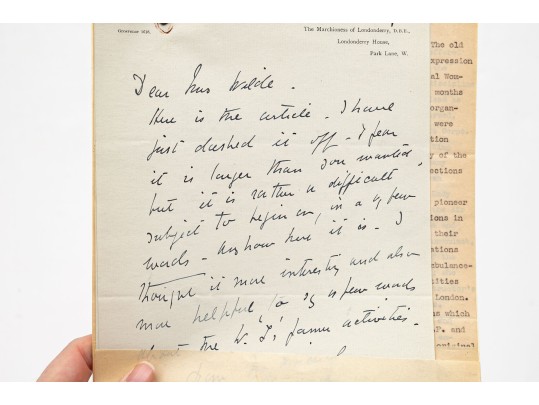 The Marchioness of Londonderry, D.B.E.,
Londonderry House,
Park Lane, W.
Dear Mrs Wilde.
Here is the article - I have
just dashed it off - I fear
it is larger than you wanted
but it is rather a difficult
subject to begin on, in a few
words - anyhow here it is - I
thought it more interesting and also
more helpful, to say a few words
about the W. L's activities -
The old
xpression
al Wom-
months
organ-
were
tion
y of the
ections
pioneer
ions in
their
ations
mbulance-
ities
London.
s which
.F. and
original